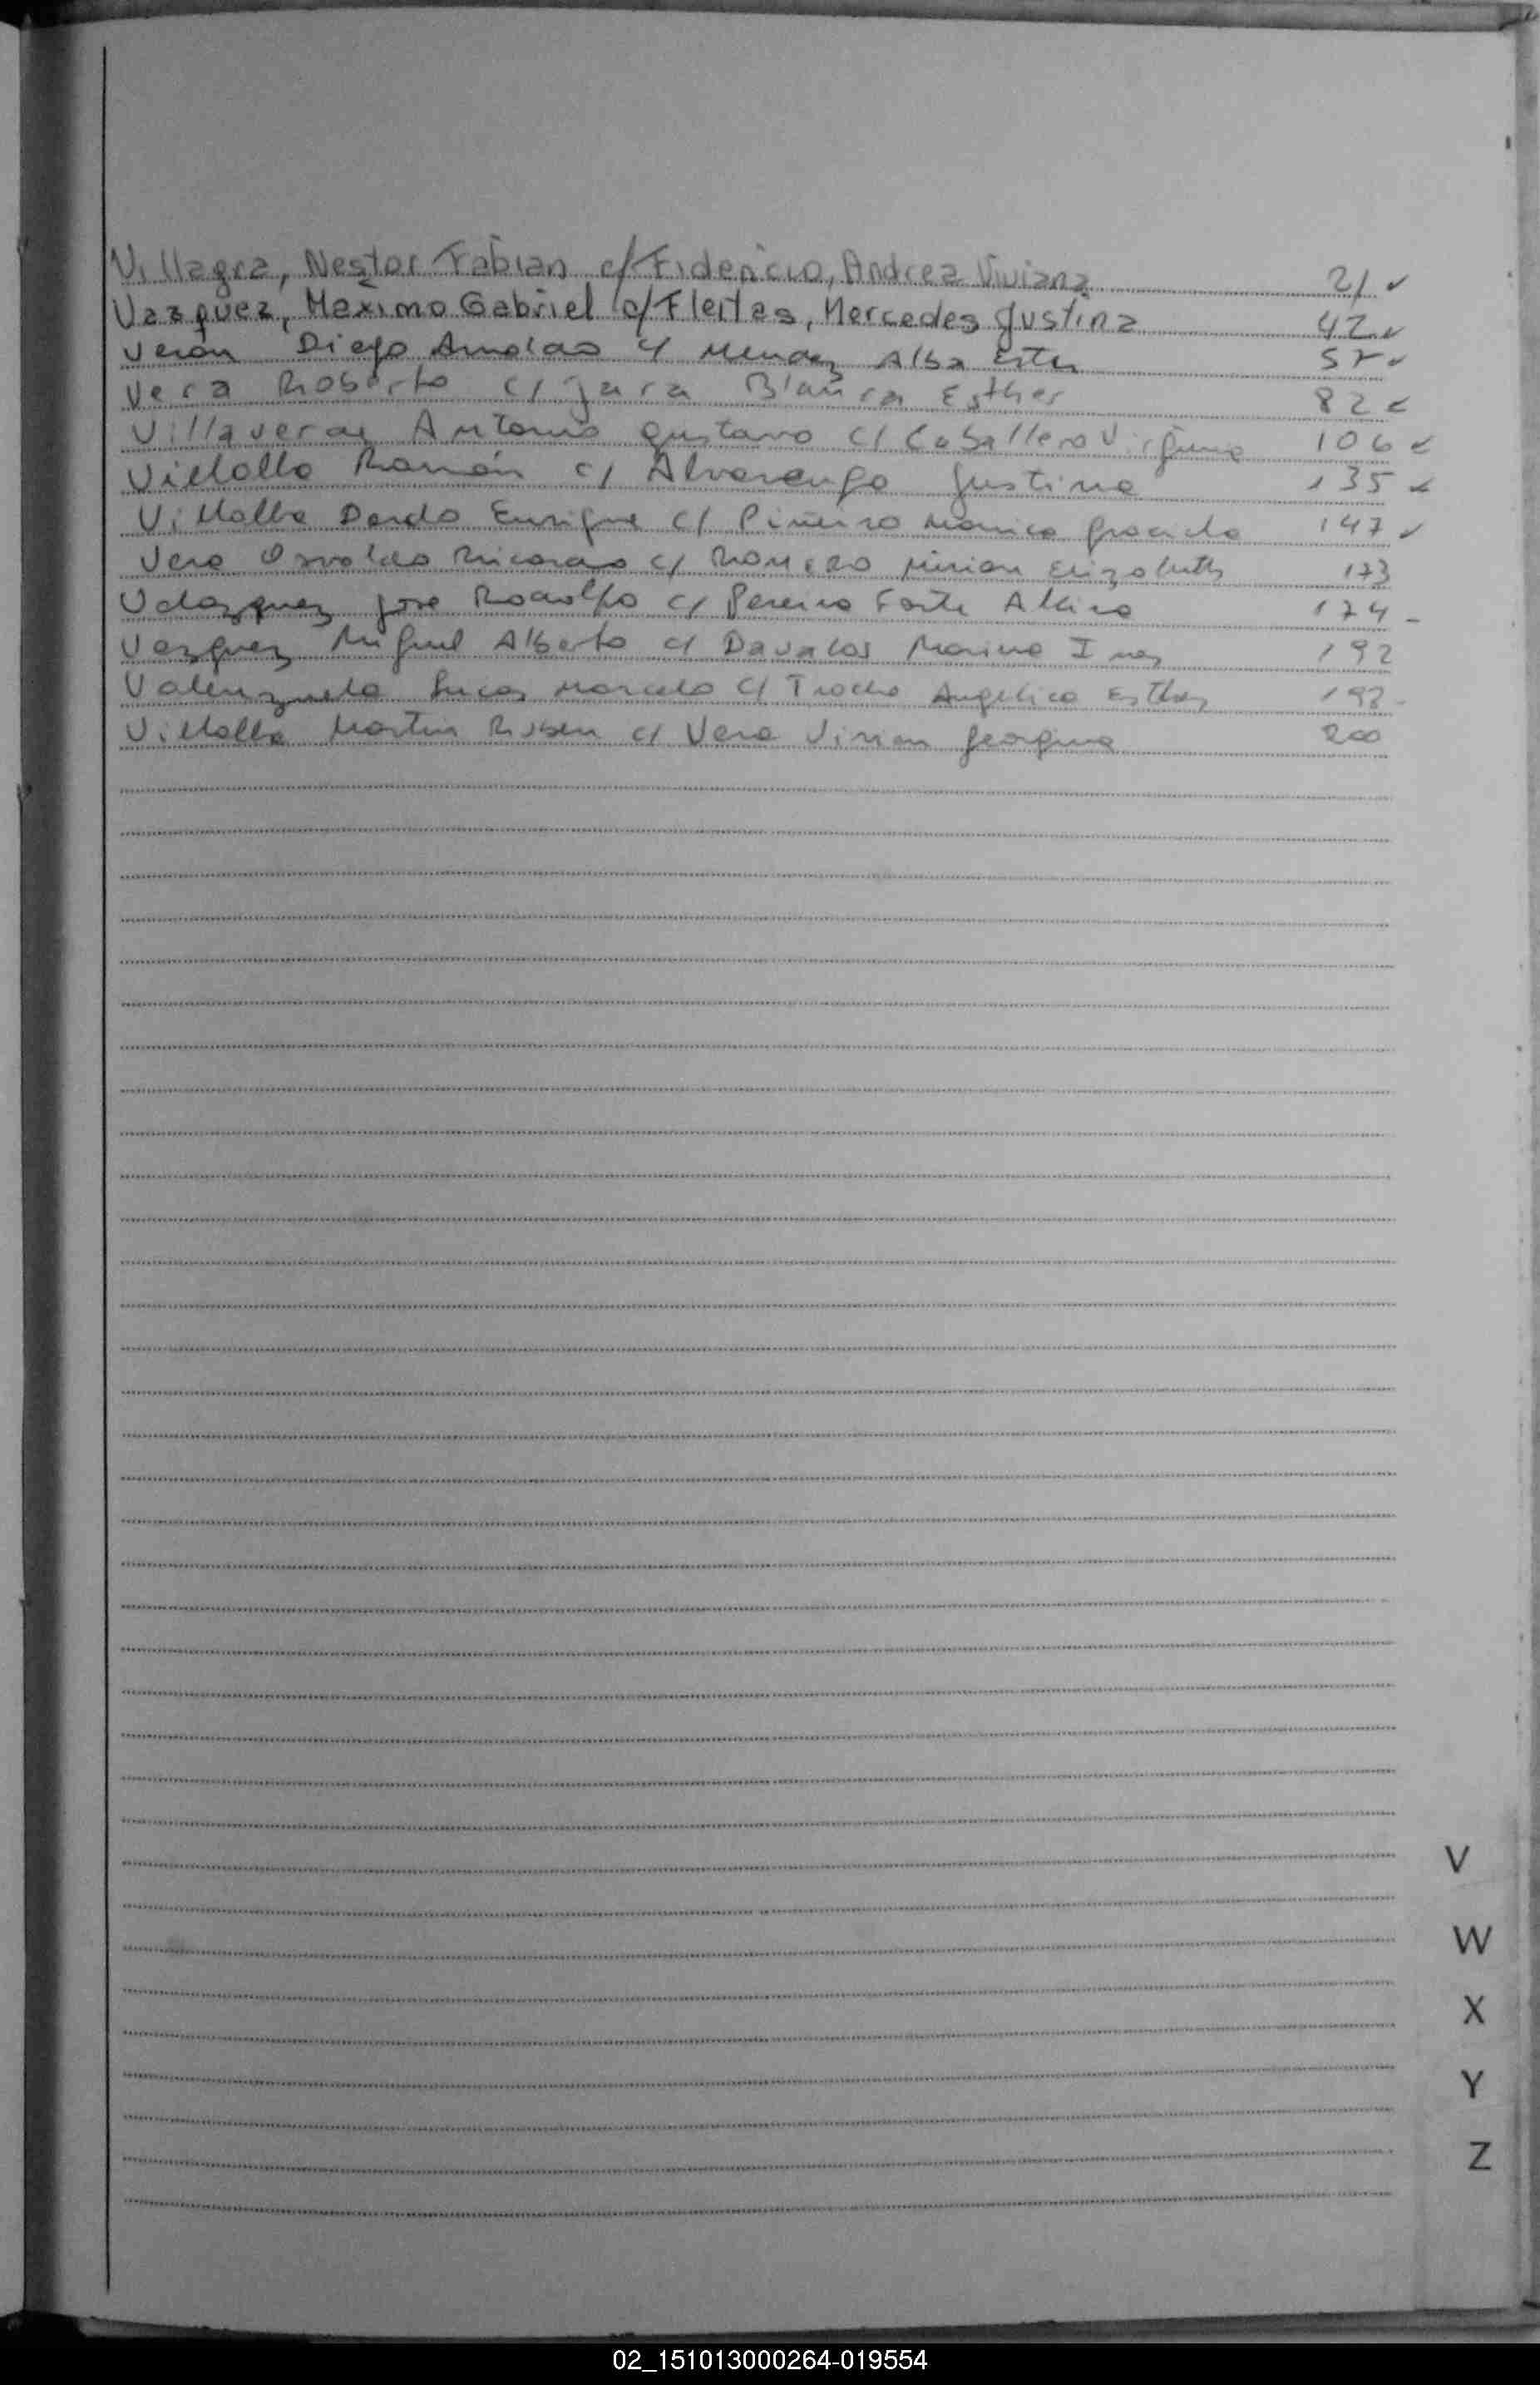 Villagra, Nestor Fabian c/ Fidencio, Andrea Viviana 21 ✓
Vazquez, Maximo Gabriel c/ Fleitas, Mercedes Justina 42 ✓
Veron Diego Arnoldo c/ Mendez Alba Ester 57 ✓
Vera Roberto c/ Jara Blanca Esther 82 ✓
Villaverde Antonio Gustavo c/ Caballero Virginia 106 ✓
Villalba Ramón c/ Alvarenga Justina 135 ✓
Villalba Dardo Enrique c/ Piñeiro Monica Graciela 147 ✓
Vera Osvaldo Ricardo c/ Romero Mirian Elizabeth 173
Velazquez Jose Rodolfo c/ Pereira Forte 174 -
Vazquez Miguel Alberto c/ Davalos Marina Ines 192
Valenzuela Lucas Marcelo c/ Troche Angelica Esther 198 -
Villalba Martin Ruben c/ Vera Vivian Georgina 200
V
W
X
Y
Z
02_151013000264-019554